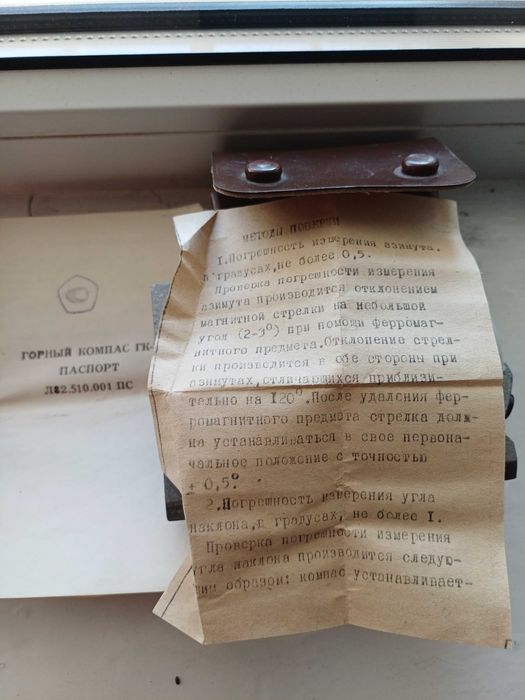 ГОРНЫЙ КОМПАС ГК-
ПАСПОРТ
Л82.510.001 ПС
МЕТОДЫ ПОВЕРКИ
1.Погрешность измерения азимута.
в градусах,не более 0,5.
Проверка погрешности измерения
азимута производится отклонением
магнитной стрелки на небольшой
угол (2-3°) при помощи ферромаг-
нитного предмета.Отклонение стрел-
ки производится в обе стороны при
азимутах,отличающихся приблизи-
тельно на 120°.После удаления фер-
ромагнитного предмета стрелка долж-
на устанавливаться в свое первона-
чальное положение с точностью
± 0,5°.
2.Погрешность измерения угла
наклона,в градусах, не более I.
Проверка погрешности измерения
угла наклона производится следую-
щим образом: компас устанавливает-